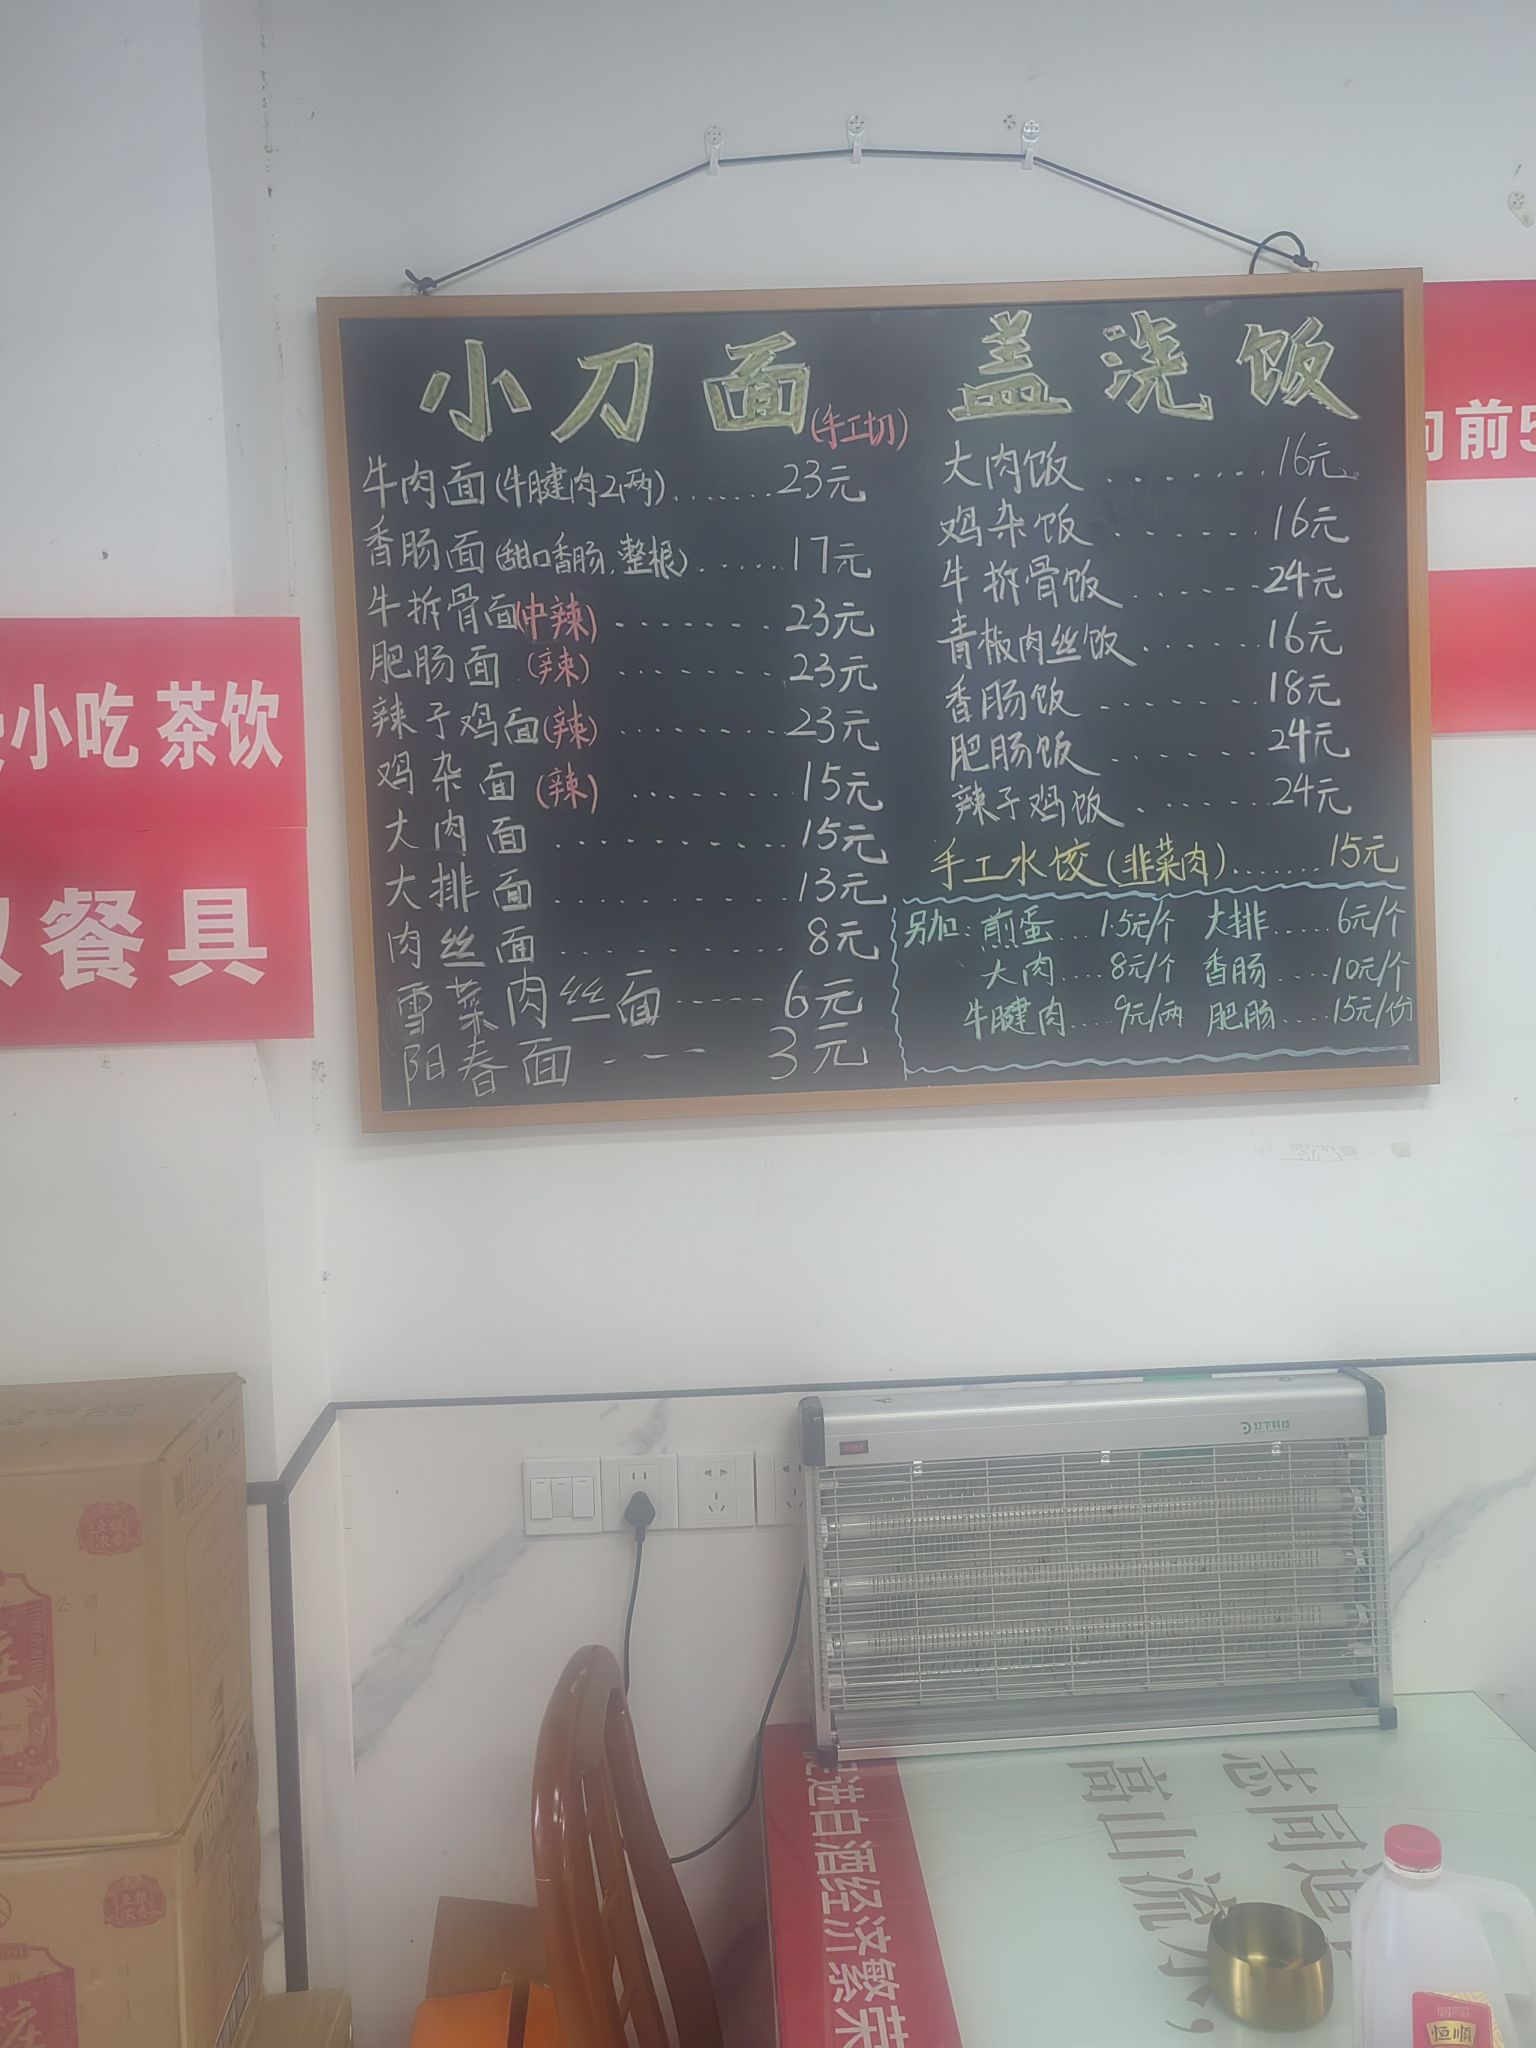 小刀面(手工切)
牛肉面(牛腱肉2两).......23元
香肠面(甜口香肠,整根)......17元
牛拆骨面(中辣).......23元
肥肠面(辣).......23元
辣子鸡面(辣)........23元
鸡杂面(辣)........15元
大肉面..........15元
大排面..........13元
肉丝面..........8元
雪菜肉丝面-----6元
阳春面----3元
盖浇饭
大肉饭.......16元
鸡杂饭.......16元
牛拆骨饭......24元
青椒肉丝饭......16元
香肠饭......18元
肥肠饭......24元
辣子鸡饭.......24元
手工水饺(韭菜肉).......15元
另加:煎蛋...1.5元/个 大排.....6元/个
大肉....8元/个 香肠....10元/个
牛腱肉....9元/两 肥肠....15元/份
小吃 茶饮
餐具
向前5
志同道
高山流水,
促进白酒经济繁荣
恒顺
公司